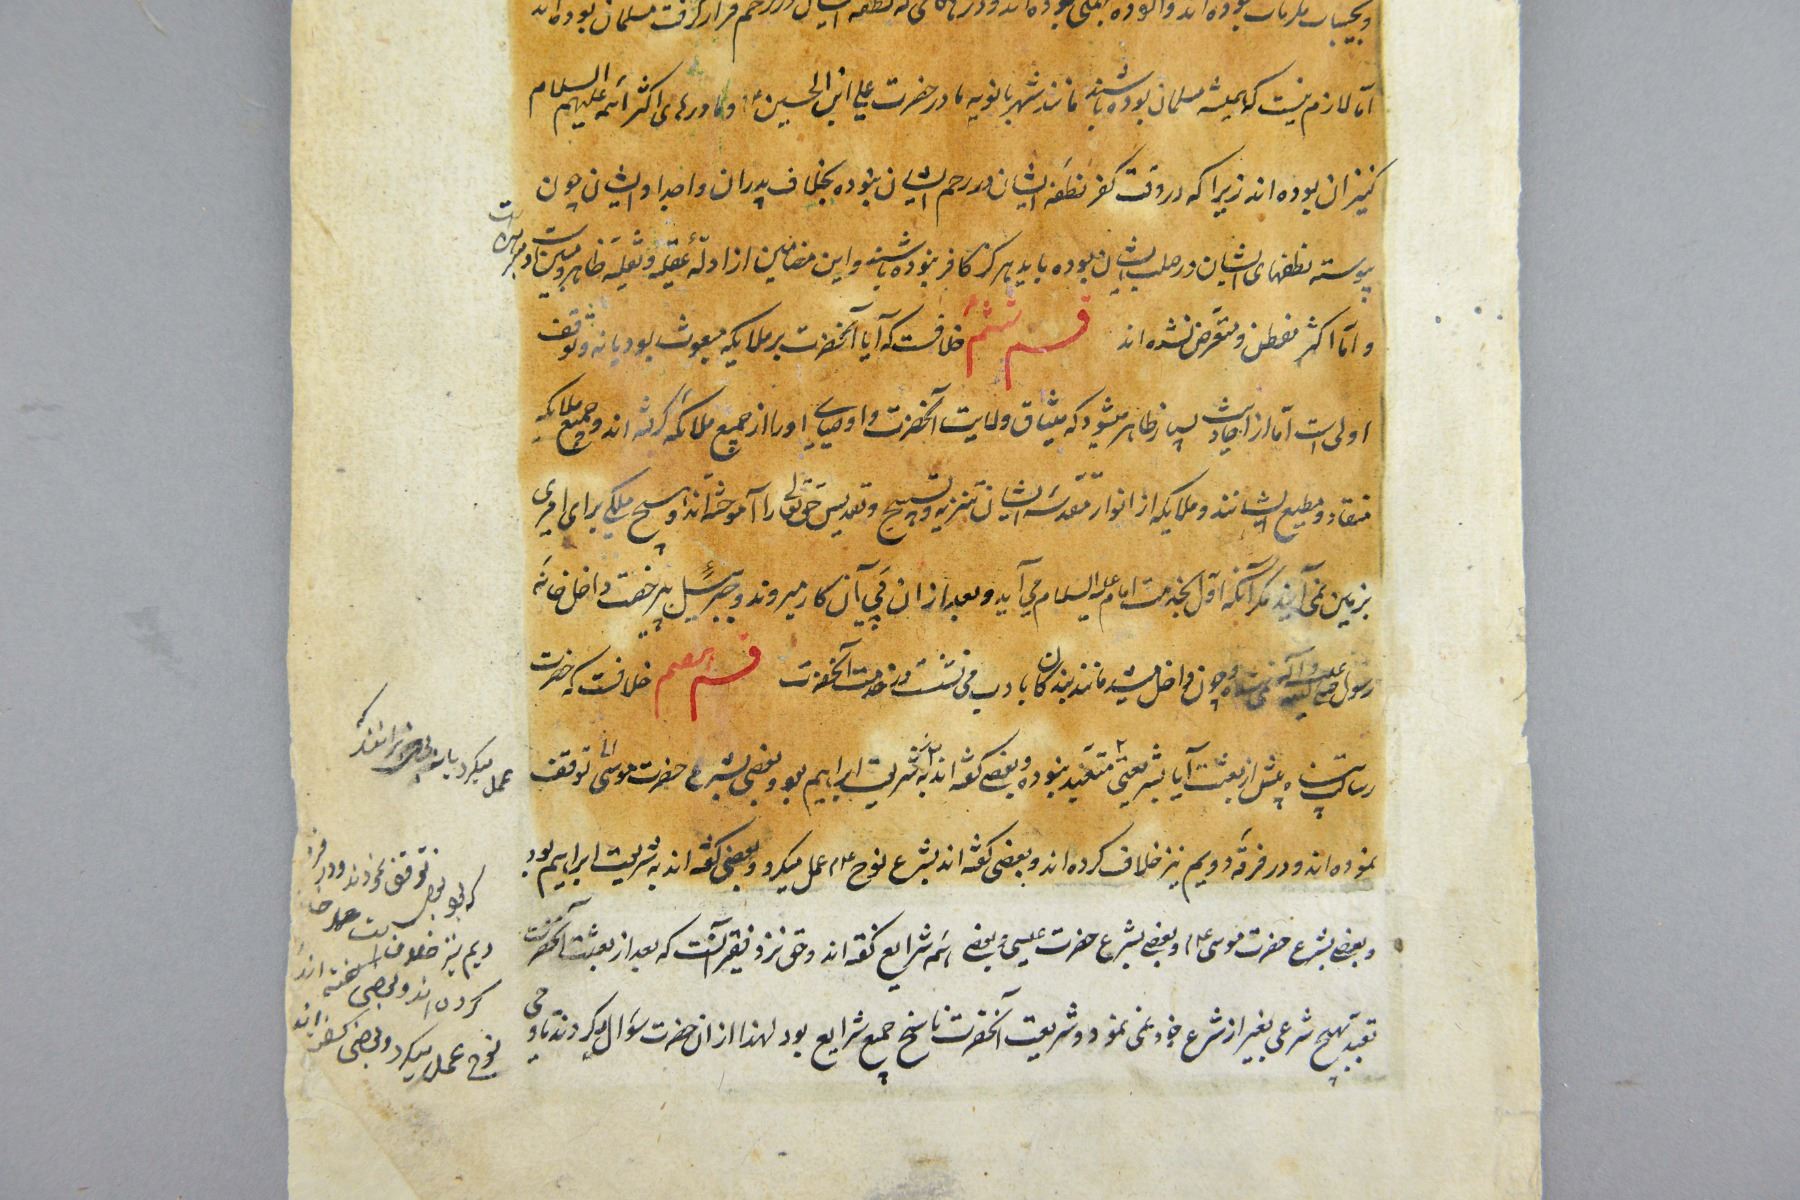 و بحسب
بوده‌اند و آلوده
بوده‌اند و در
که نطفه ایشان در رحم قرار گرفت مسلمان بوده‌اند
اما لازم نیست که همیشه مسلمان بوده باشند مانند شهربانویه مادر حضرت علی ابن الحسین ع و مادرهای اکثر ائمه علیهم السلام
کنیزان بوده اند زیرا که در وقت کفر نطفه ایشان در رحم ایشان نبوده بخلاف پدران و اجداد ایشان چون
پیوسته نطفهای ایشان در صلب ایشان بوده باید هرگز کافر نبوده باشند و این مضامین از ادله عقلیه و نقلیه ظاهر و مبین
و اما اکثر تفطن و متعرض نشده اند قسم ششم خلافست که آیا آنحضرت بر ملایکه مبعوث بود یا نه و توقف
اولی است اما از احادیث بسیار ظاهر میشود که میثاق ولایت آنحضرت و اوصیای او را از جمیع ملائکه گرفته اند و جمیع ملایکه
منقاد و مطیع ایشانند و ملایکه از انوار مقدسه ایشان تنزیه و تسبیح و تقدیس حق تعالی را آموخته‌اند و هیچ ملکی برای امری
بزمین نمی آیند مگر آنکه اول بخدمت امام علیه السلام می آید و بعد از ان پی آن کار میروند و جبرئیل بی رخصت داخل خانه
رسول صلی الله علیه و آله نمیشد و چون داخل میشد مانند بندگان بادب می نشست در خدمت آنحضرت قسم هفتم خلافست که حضرت
رسالت پناه پیش از بعثت آیا بشریعتی متعبد بنوده و بعضی گفته اند به شریعت ابراهیم بود و بعضی بشرع حضرت موسی توقف
نموده اند و در فرقه دویم نیز خلاف کرده اند و بعضی گفته اند بشرع نوح ع عمل میکرد و بعضی گفته اند به شریعت ابراهیم بود
و بعضی بشرع حضرت موسی ع و بعضی بشرع حضرت عیسی و بعضی شرایع گفته اند و حق نزد فقیر آنست که بعد از بعثت آنحضرت
تعبد بهیچ شرعی بغیر از شرع خود نمی نمود و شریعت آنحضرت ناسخ جمیع شرایع بود لهذا از ان حضرت سؤال میکردند تا وحی
عمل میکرد یا
که بود بعضی توقف نمودند و در فرقه
دیم نیز خلاف است
کرده اند و بعضی گفته اند
نوح عمل میکرد و بعضی گفته اند